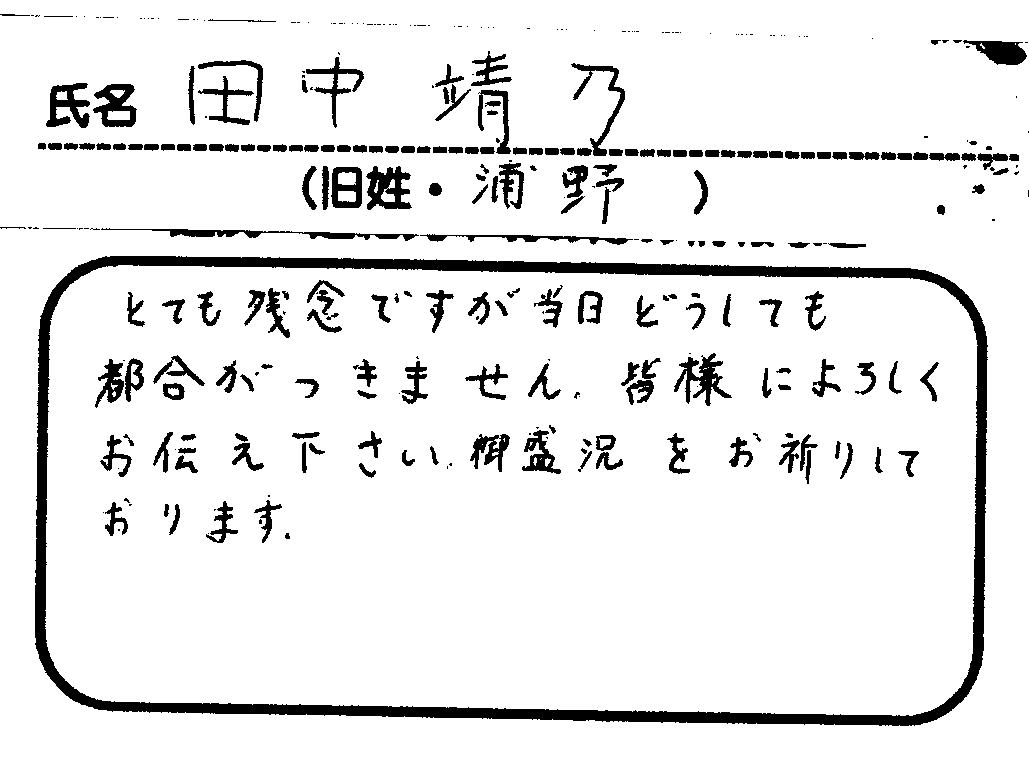 氏名 田中 靖乃
(旧姓・浦野 )
とても残念ですが当日どうしても
都合がつきません。皆様によろしく
お伝え下さい。御盛況をお祈りして
おります。